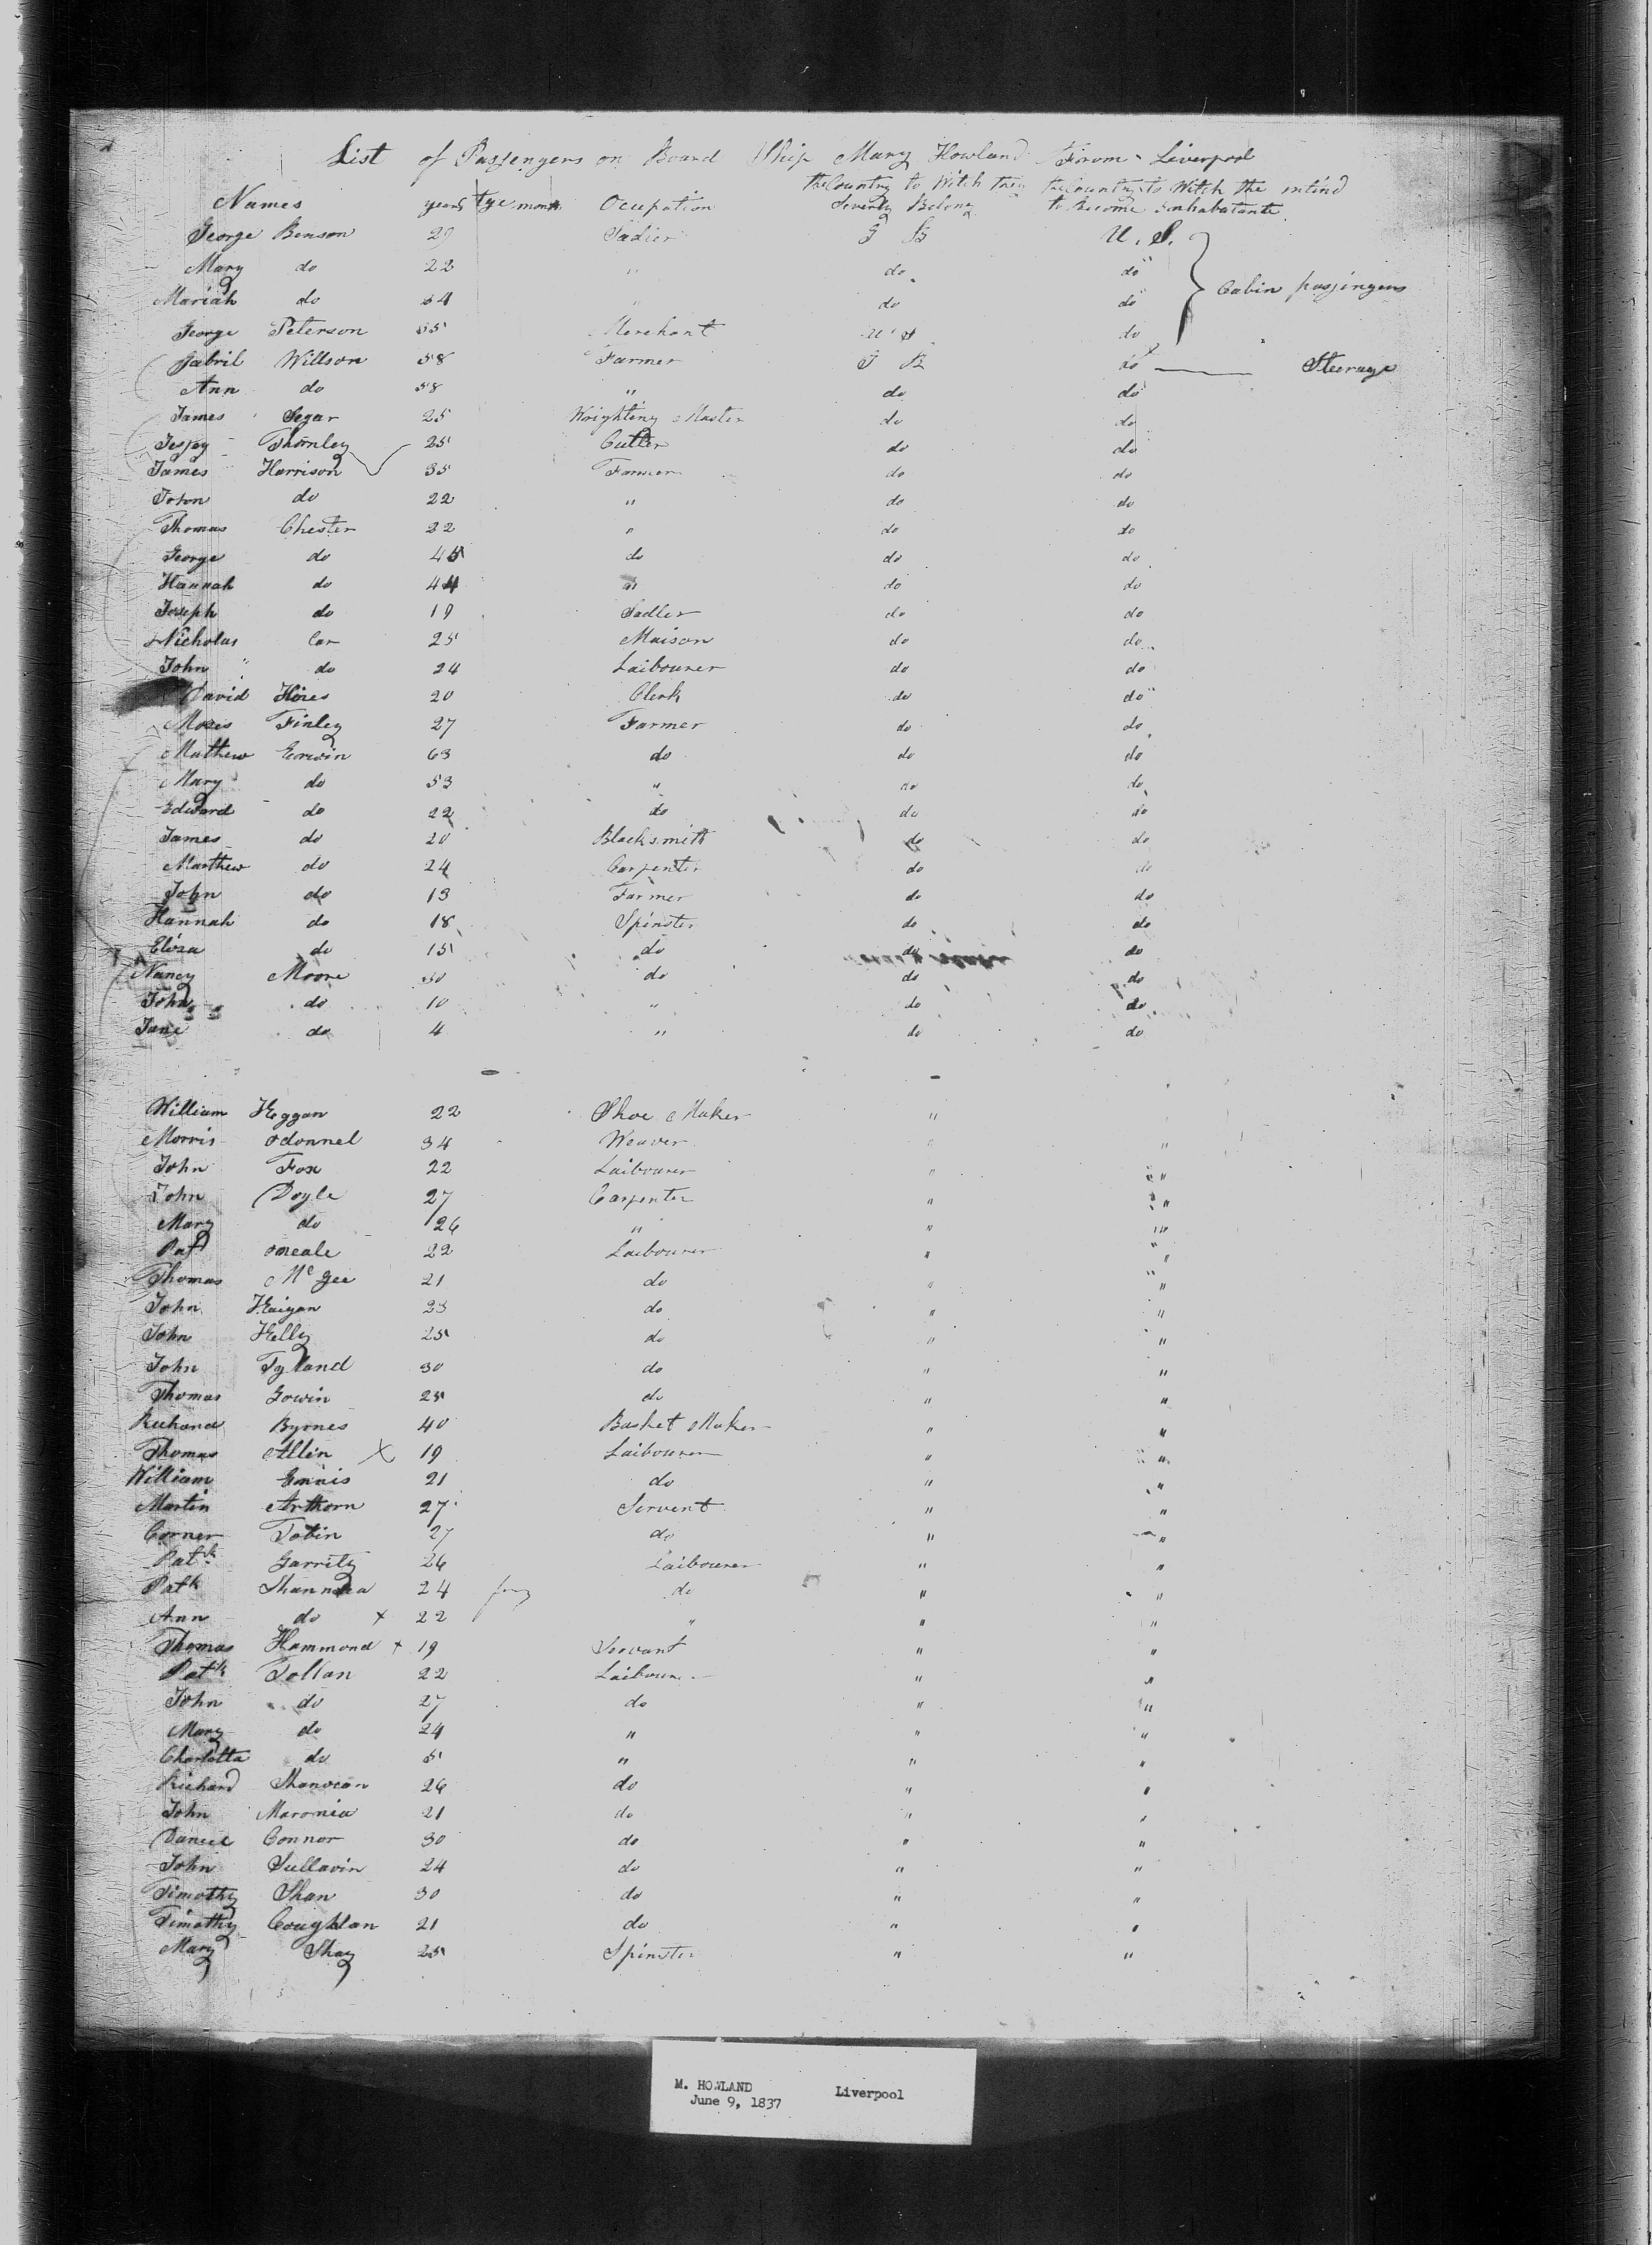 List of Passengers on Board Ship Mary Howland From Liverpool
the Country to Witch they the Country to Witch the intind
Names years Age month Ocupation Severly Belong to become inhabatants
George Benson 29 Sadler G B U. S.
Mary do 22 " do do
Cabin passingers
Mariah do do do
George Peterson 35 Merchant U S do
Gabril Willson 58 Farmer G B do Steerage
Ann do 58 " do do
James Segar 25 Wrighting Master do do
Thornley 25 Cutler do do
James Harrison 35 Farmer do do
John do 22 " do do
Thomas Chester 22 " do do
George do 45 do do do
Hannah do 44 " do do
Joseph do 19 Sadler do do
Nicholas Car 25 Maison do do
John do 24 Laibourer do do
David Hires 20 Clerk do do
Moses Finley 27 Farmer do do
Mathew Erwin 63 do do do
Mary do 53 " do do
Edward do 22 do do do
James do 20 Blacksmith do do
Matthew do 24 Carpenter do do
John do 13 Farmer do do
Hannah do 18 Spinster do do
Eliza do 15 do do do
Nancy Moore 30 do do do
John do 10 " do do
Jane do 4 " do do
William Keggan 22 Shoe Maker "
Morris Odonnel 34 Weaver " "
John Fox 22 Laibourer " "
John Doyle 27 Carpenter " "
Mary do 26 " " "
Pat Oneale 22 Laibourer " "
Thomas Mc Gee 21 do " "
John Kaigan 23 do " "
John Kelly 25 do " "
John Tyland 30 do " "
Thomas Gowin 25 do " "
Richard Byrnes 40 Basket Maker " "
Thomas Allen X 19 Laibourer " "
William Ennis 21 do " "
Martin Arthorn 27 Servent " "
Corner Tobin 27 do " "
Patk Garrity 26 Laibourer " "
Patk 24 do " "
Ann do + 22 " " "
Thomas Hammond + 19 Servant " "
Patk Tollan 22 Laibourer " "
John do 27 do " "
Mary do 24 " " "
Charlotta do 5 " " "
Richard 26 do " "
John Maronia 21 do " "
Daniel Connor 30 do " "
John Sullavin 24 do " "
Timothy Shan 30 do " "
Timothy Coughlan 21 do " "
Mary Shay 25 Spinster " "
M. HOWLAND Liverpool
June 9, 1837